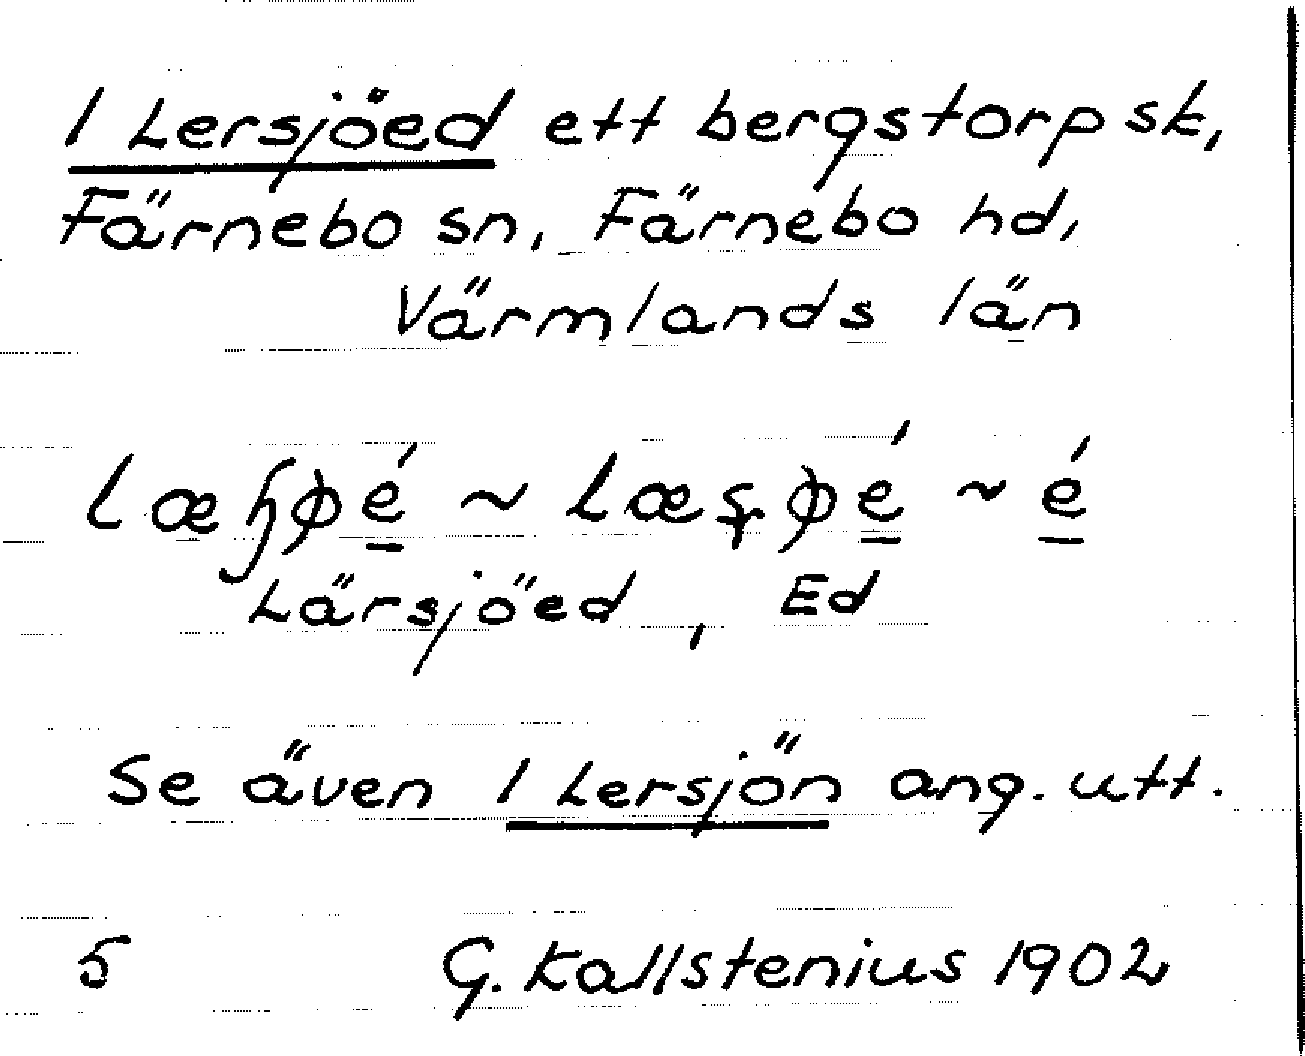 1 Lersjöed ett bergstorp sk,
Färnebo sn, Färnebo hd,
Värmlands län
læɧφé ~ læʂφé ~ é
Lärsjöed, Ed
Se även 1 Lersjön ang. utt.
5 G. Kallstenius 1902